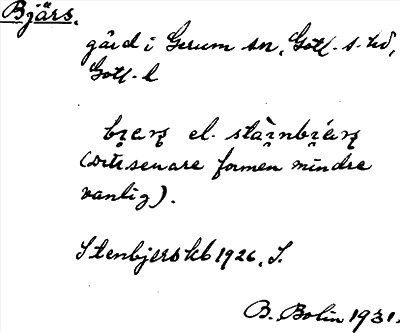 Bjärs.
gård i Gerum sn, Gotl. s. hd,
Gotl. l
el.
senare formen mindre
vanlig).
Stenbjers kb 1926, S.
B. Bolin 1931.